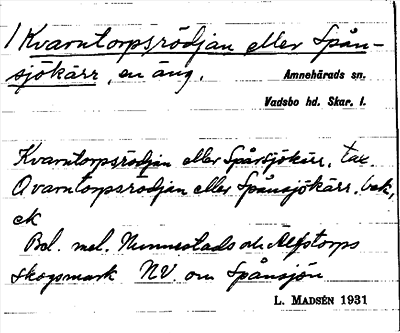 1 Kvarntorpsrödjan eller Spån-
sjökärr, en äng.
Amnehärads sn.
Vadsbo hd. Skar. l.
Kvarntorpsrödjan eller Spånsjökärr, tax.
Qvarntorpsrödjan eller Spånsjökärr, bek,
ek
Bel. mel. Nunnestads och Alfstorps
skogsmark NV om Spånsjön
L. MADSÉN 1931